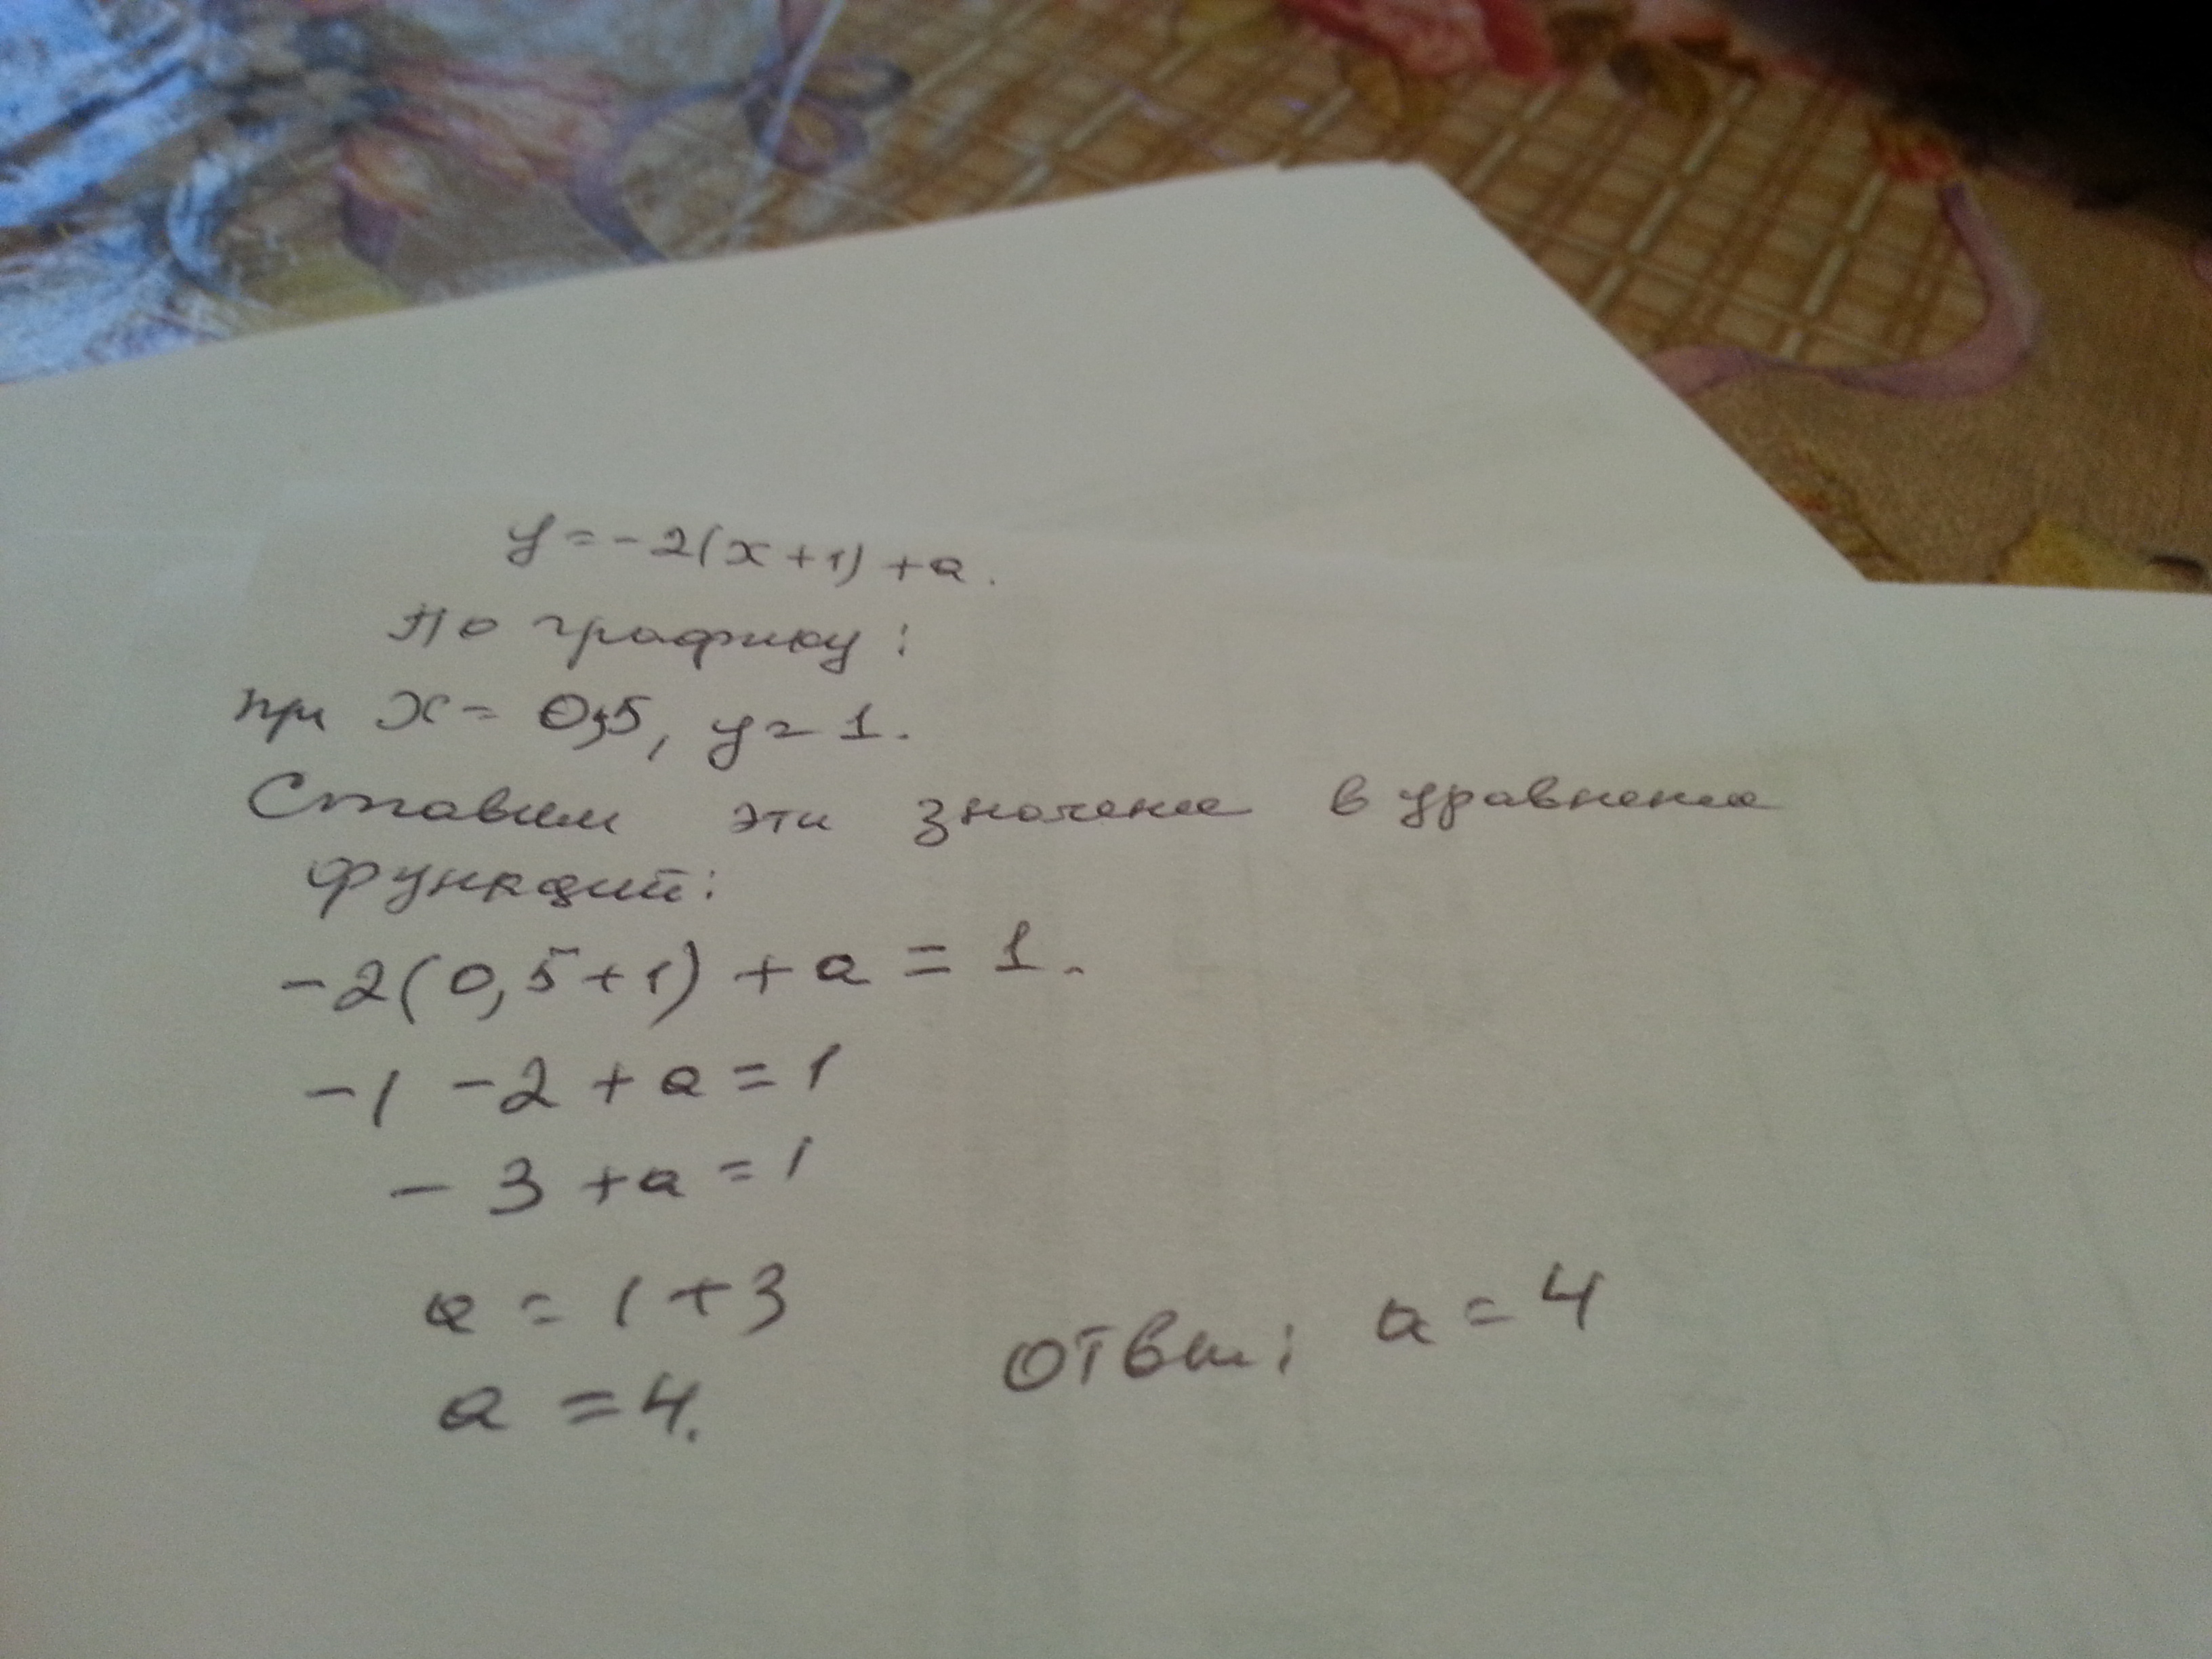 y = -2(x+1)+a.
По графику:
при x = 0,5, y = 1.
Ставим эти значение в уравнение
функций:
-2(0,5+1)+a = 1.
-1 -2 + a = 1
- 3 + a = 1
a = 1 + 3
a = 4.
Ответ: a = 4